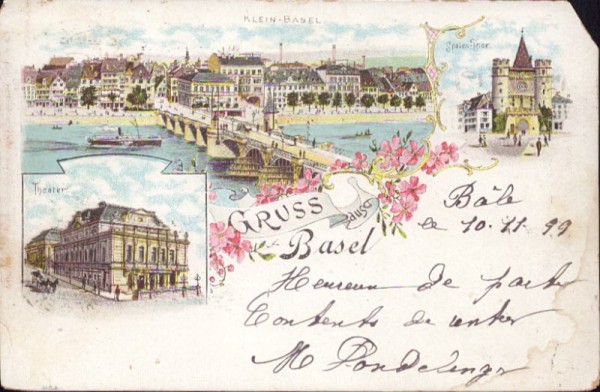 KLEIN-BASEL
Spalen-Thor
Theater
GRUSS
aus
Basel
Bâle
le 10.11.99
Heureux de partir
Contents de rester
M